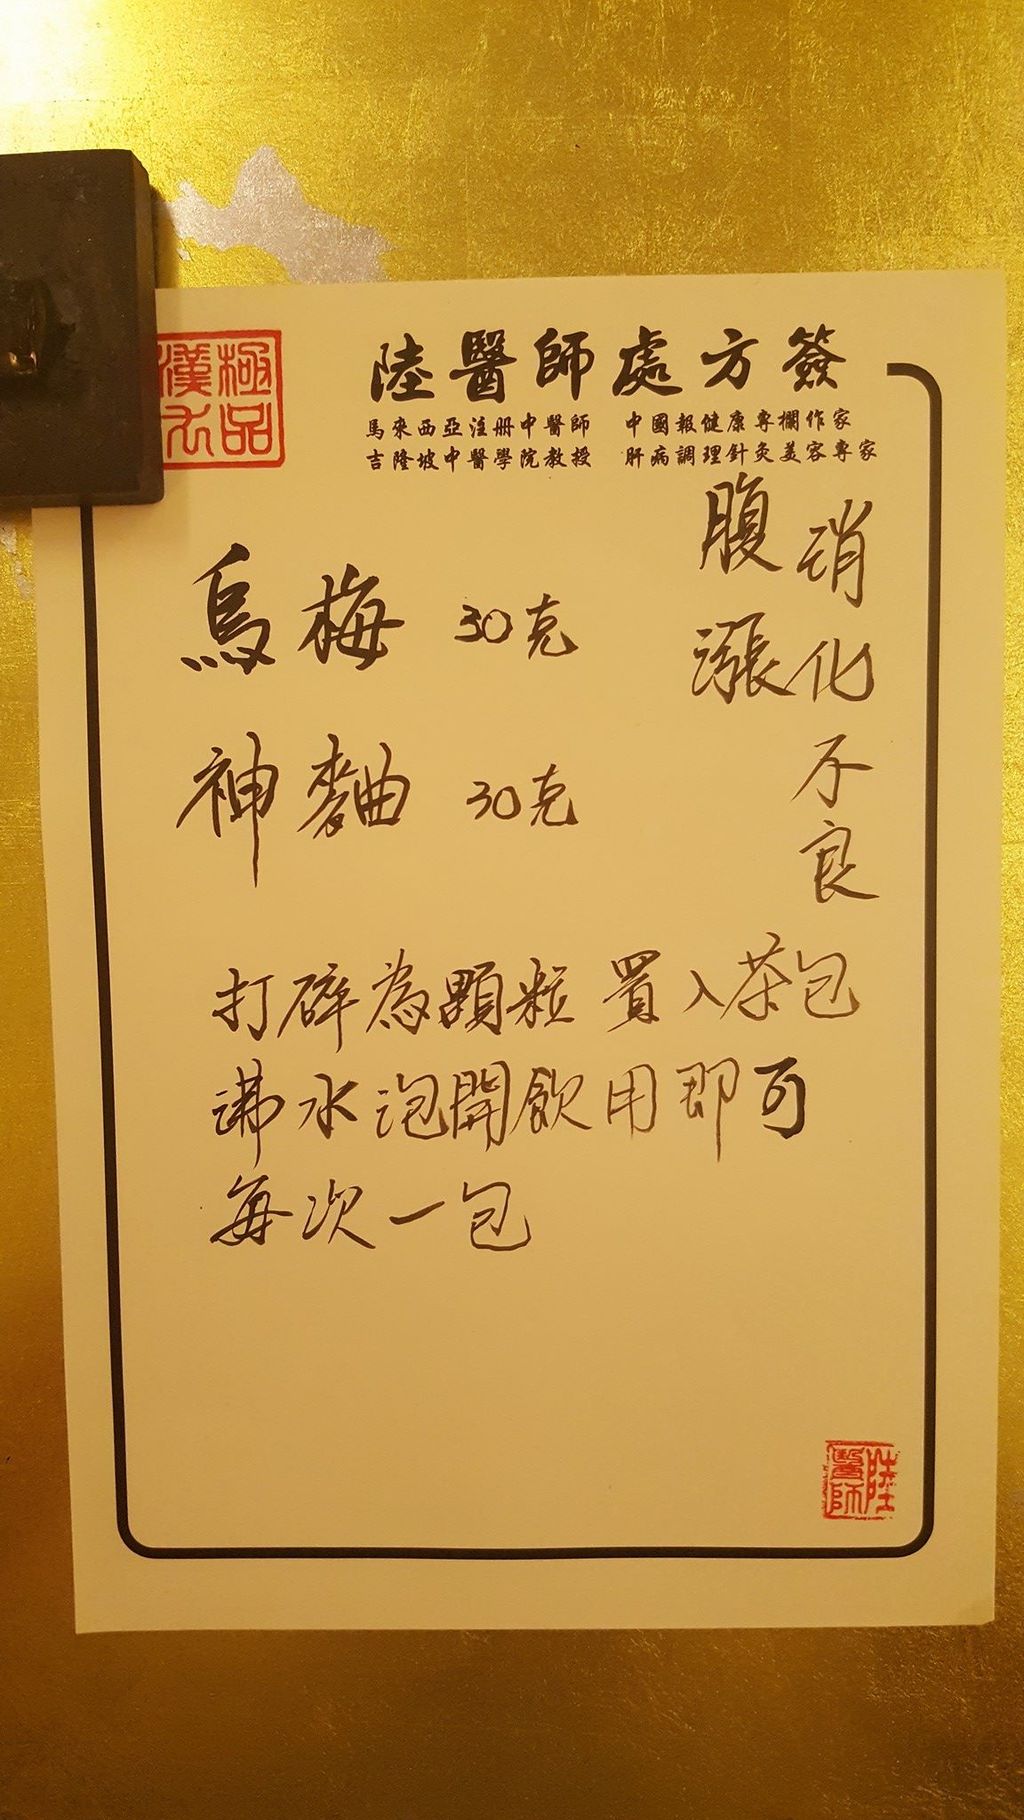 極品
漢方
陸醫師處方簽
馬來西亞注册中醫師 中國報健康專欄作家
吉隆坡中醫學院教授 肝病調理針灸美容專家
消化不良
腹漲
烏梅 30克
神麯 30克
打碎為顆粒 置入茶包
沸水泡開飲用即可
每次一包
陸醫師